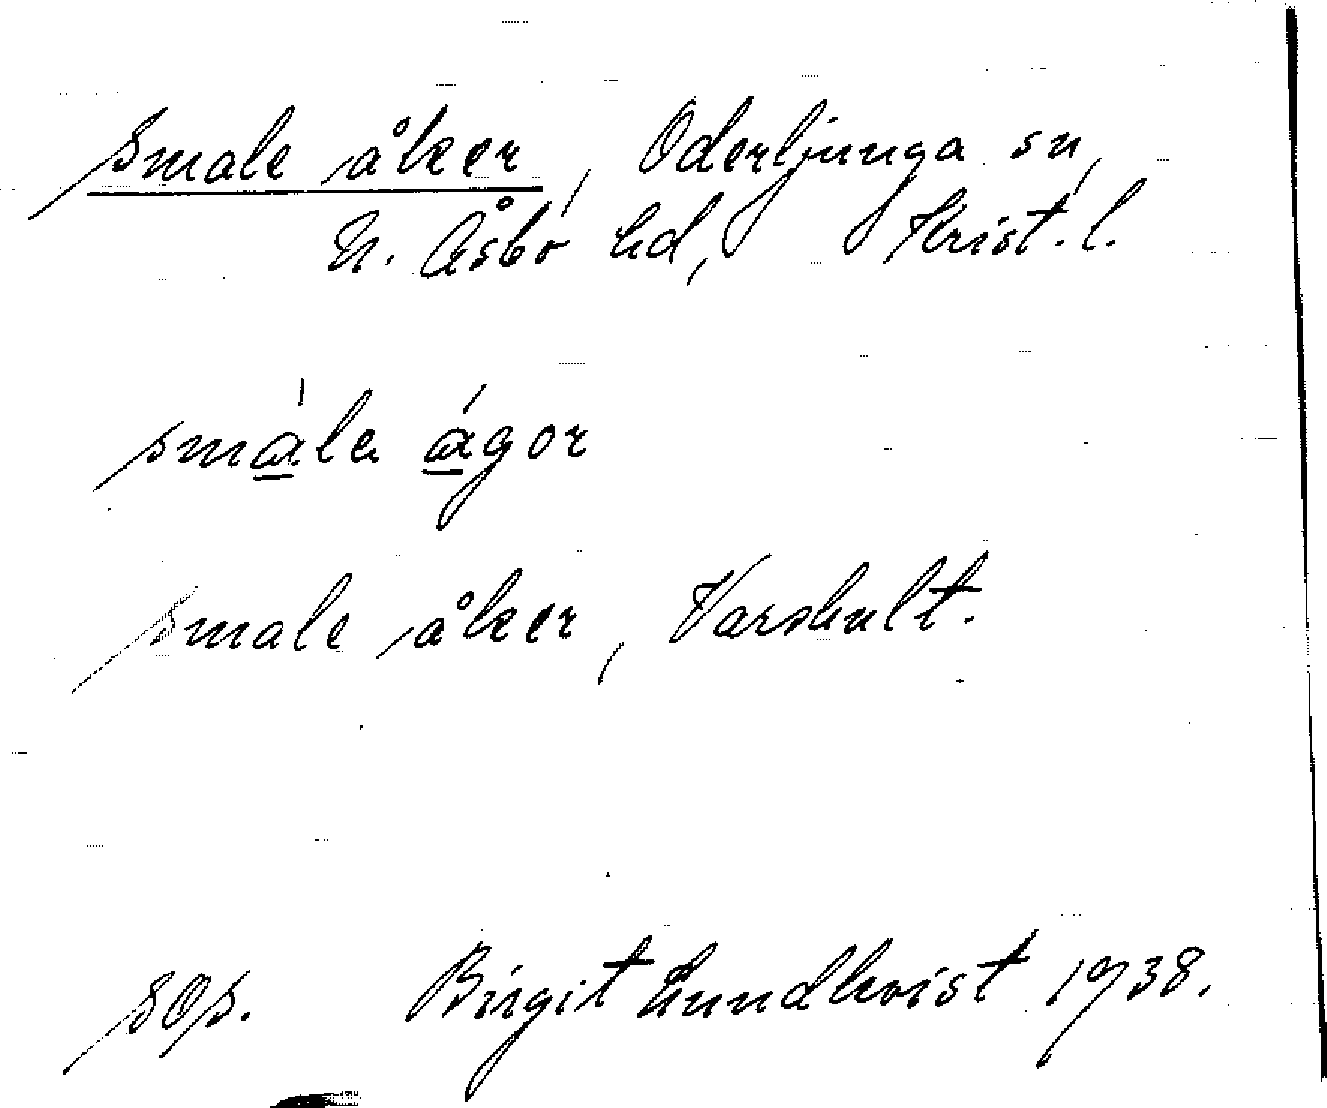 Smale åker, Oderljunga sn,
N. Åsbo hd, Krist. l.
småla ágor
Smale åker, Varshult.
Birgit Lundkvist 1938.